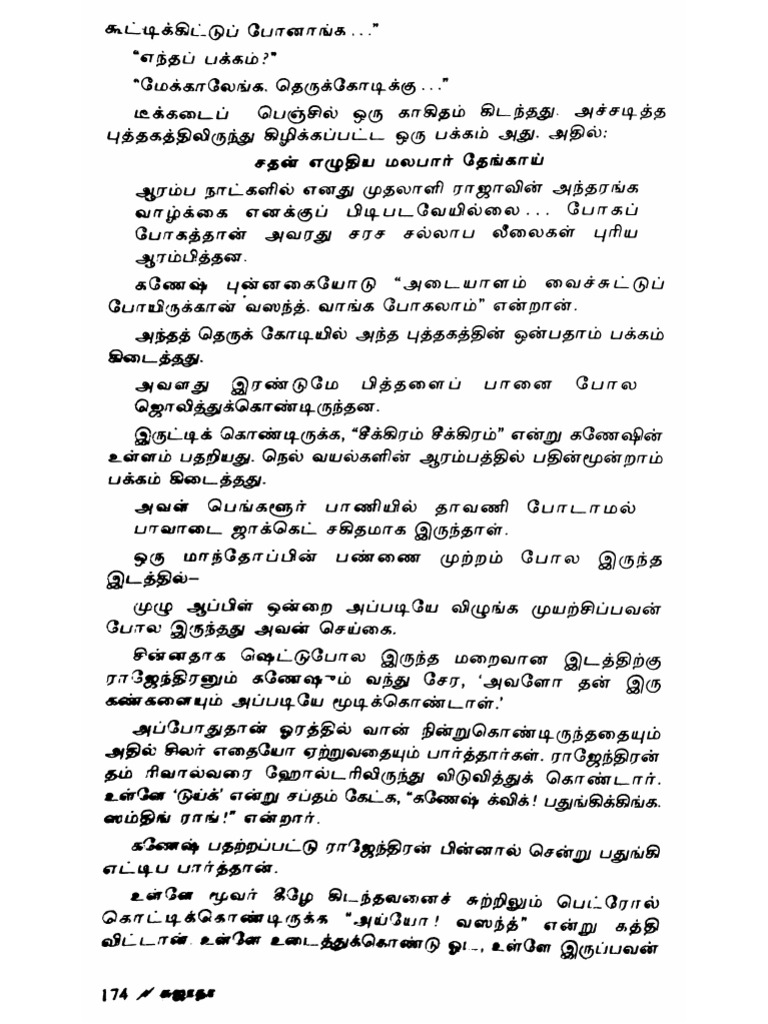 கூட்டிக்கிட்டுப் போனாங்க ..."
"எந்தப் பக்கம்?"
"மேக்காலேங்க. தெருக்கோடிக்கு ..."
டீக்கடைப் பெஞ்சில் ஒரு காகிதம் கிடந்தது. அச்சடித்த
புத்தகத்திலிருந்து கிழிக்கப்பட்ட ஒரு பக்கம் அது. அதில்:
சதன் எழுதிய மலபார் தேங்காய்
ஆரம்ப நாட்களில் எனது முதலாளி ராஜாவின் அந்தரங்க
வாழ்க்கை எனக்குப் பிடிபடவேயில்லை ... போகப்
போகத்தான் அவரது சரச சல்லாப லீலைகள் புரிய
ஆரம்பித்தன.
கணேஷ் புன்னகையோடு "அடையாளம் வைச்சுட்டுப்
போயிருக்கான் வஸந்த். வாங்க போகலாம்" என்றான்.
அந்தத் தெருக் கோடியில் அந்த புத்தகத்தின் ஒன்பதாம் பக்கம்
கிடைத்தது.
அவளது இரண்டுமே பித்தளைப் பானை போல
ஜொலித்துக்கொண்டிருந்தன.
இருட்டிக் கொண்டிருக்க, "சீக்கிரம் சீக்கிரம்" என்று கணேஷின்
உள்ளம் பதறியது. நெல் வயல்களின் ஆரம்பத்தில் பதின்மூன்றாம்
பக்கம் கிடைத்தது.
அவள் பெங்களூர் பாணியில் தாவணி போடாமல்
பாவாடை ஜாக்கெட் சகிதமாக இருந்தாள்.
ஒரு மாந்தோப்பின் பண்ணை முற்றம் போல இருந்த
இடத்தில்–
முழு ஆப்பிள் ஒன்றை அப்படியே விழுங்க முயற்சிப்பவன்
போல இருந்தது அவன் செய்கை.
சின்னதாக ஷெட்டுபோல இருந்த மறைவான இடத்திற்கு
ராஜேந்திரனும் கணேஷும் வந்து சேர, 'அவளோ தன் இரு
கண்களையும் அப்படியே மூடிக்கொண்டாள்.'
அப்போதுதான் ஓரத்தில் வான் நின்றுகொண்டிருந்ததையும்
அதில் சிலர் எதையோ ஏற்றுவதையும் பார்த்தார்கள். ராஜேந்திரன்
தம் ரிவால்வரை ஹோல்டரிலிருந்து விடுவித்துக் கொண்டார்.
உள்ளே 'டுய்க்' என்று சப்தம் கேட்க, "கணேஷ் க்விக்! பதுங்கிக்கிங்க.
ஸம்திங் ராங்!" என்றார்.
கணேஷ் பதற்றப்பட்டு ராஜேந்திரன் பின்னால் சென்று பதுங்கி
எட்டிப பார்த்தான்.
உள்ளே மூவர் கீழே கிடந்தவனைச் சுற்றிலும் பெட்ரோல்
கொட்டிக்கொண்டிருக்க "அய்யோ! வஸந்த்" என்று கத்தி
விட்டான். உள்ளே உடைத்துக்கொண்டு ஓட, உள்ளே இருப்பவன்
174 சுஜாதா